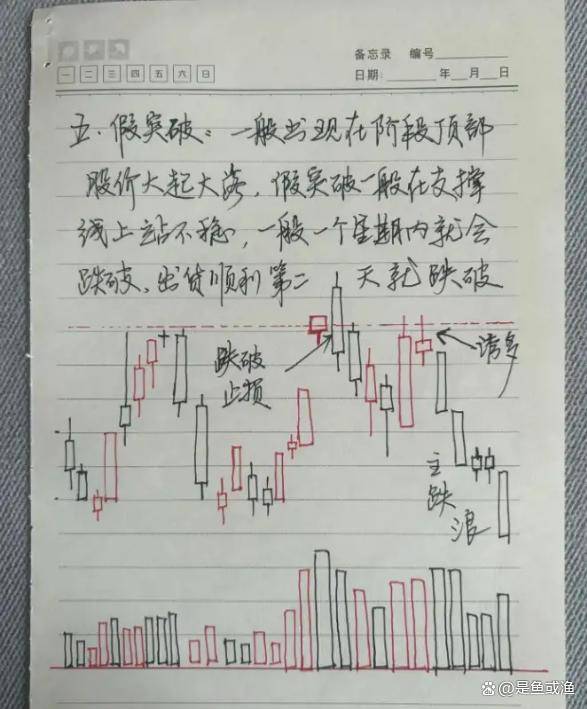 备忘录 编号
一 二 三 四 五 六 日
日期: 年 月 日
五、假突破:一般出现在阶段顶部
股价大起大落,假突破一般在支撑
线上站不稳,一般一个星期内就会
跌破、出货顺利第二 天就跌破
跌破
止损
诱多
主
跌
浪
@是鱼或渔